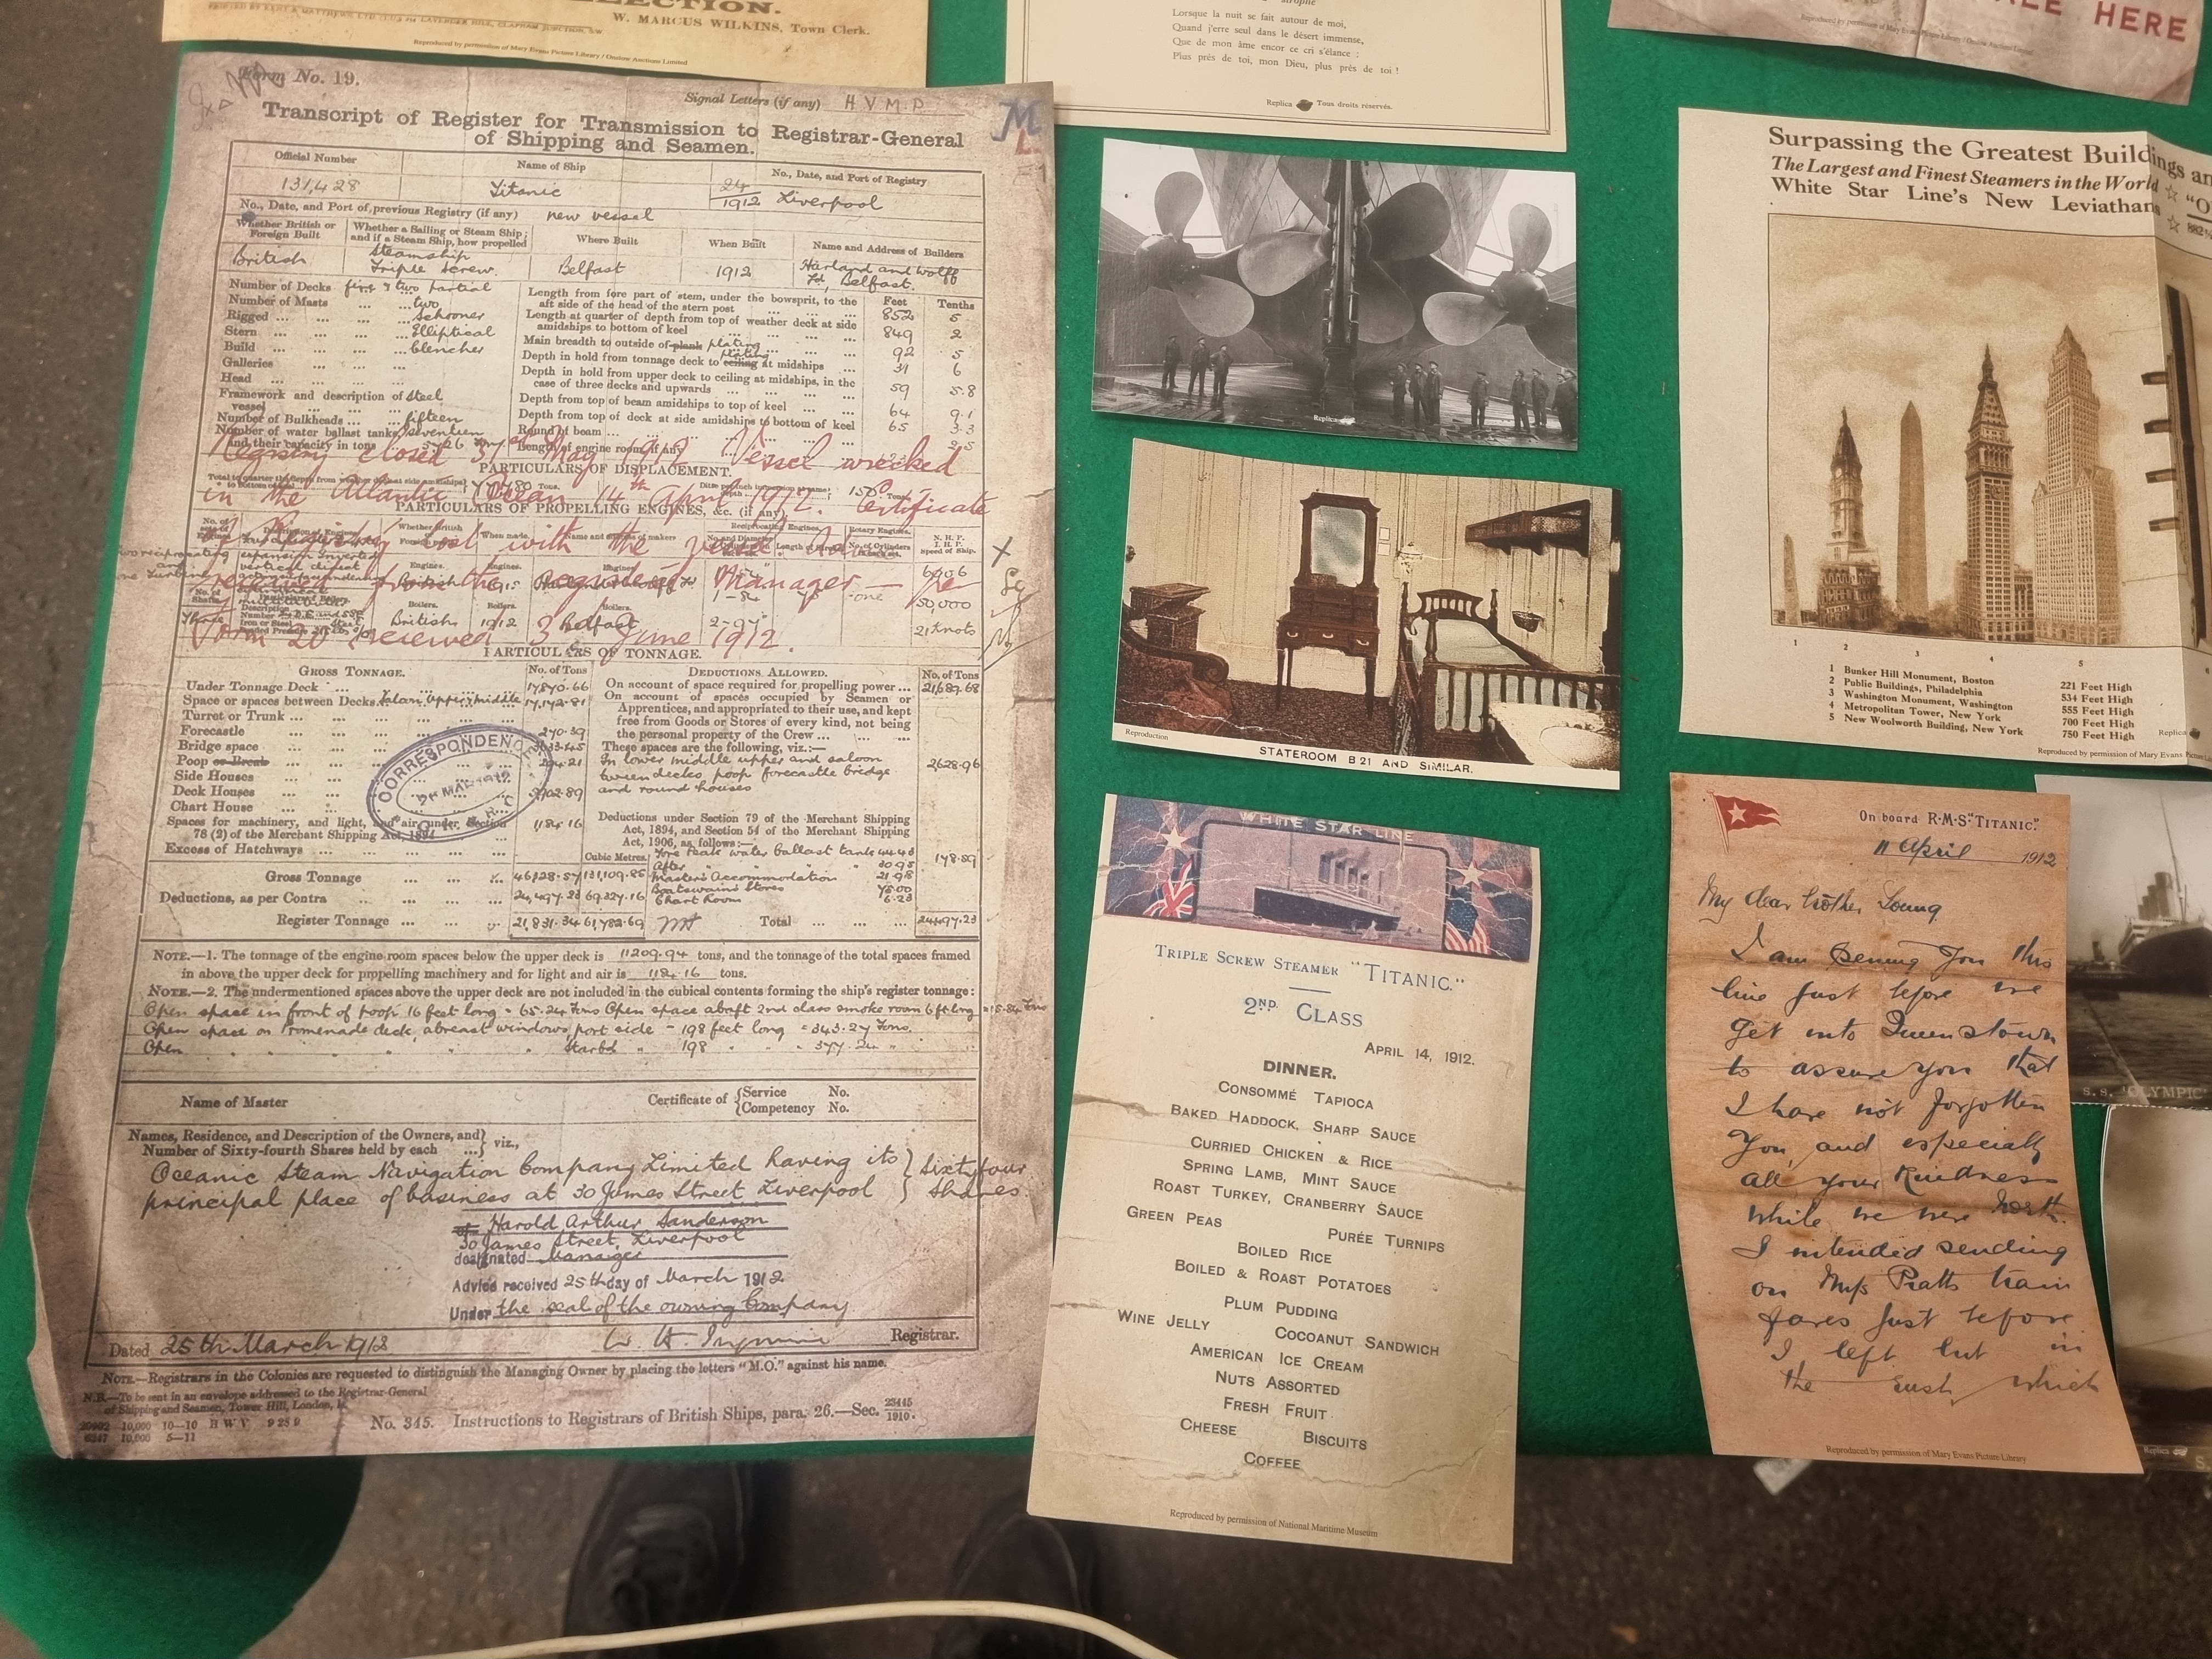 ECTION.
W. MARCUS WILKINS, Town Clerk.
Reproduced by permission of Mary Evans Picture Library / Onslow Auctions Limited
Lorsque la nuit se fait autour de moi,
Quand j'erre seul dans le désert immense,
Que de mon âme encor ce cri s'élance :
Plus près de toi, mon Dieu, plus près de toi !
Replica Tous droits réservés.
ALE HERE
Form No. 19.
Signal Letters (if any) H V M P
Transcript of Register for Transmission to Registrar-General
of Shipping and Seamen.
Official Number
Name of Ship
No., Date, and Port of Registry
131,428
Titanic
24/1912 Liverpool
No., Date, and Port of previous Registry (if any) new vessel
Whether British or Foreign Built
Whether a Sailing or Steam Ship; and if a Steam Ship, how propelled
Where Built
When Built
Name and Address of Builders
British
Steamship Triple Screw.
Belfast
1912
Harland and Wolff Ld, Belfast.
Number of Decks five & two partial
Number of Masts two
Rigged Schooner
Stern Elliptical
Build clencher
Galleries
Head
Framework and description of vessel Steel
Number of Bulkheads fifteen
Number of water ballast tanks seventeen
and their capacity in tons
Feet Tenths
Length from fore part of stem, under the bowsprit, to the aft side of the head of the stern post 852 5
Length at quarter of depth from top of weather deck at side amidships to bottom of keel 849 2
Main breadth to outside of plank plating 92 5
Depth in hold from tonnage deck to ceiling plating at midships 31 6
Depth in hold from upper deck to ceiling at midships, in the case of three decks and upwards 59 5.8
Depth from top of beam amidships to top of keel 64 9.1
Depth from top of deck at side amidships to bottom of keel 65 3.3
Round of beam
Length of engine room, if any
Registry closed 31st May 1912. Vessel wrecked
PARTICULARS OF DISPLACEMENT.
in the Atlantic Ocean 14th April 1912. Certificate
PARTICULARS OF PROPELLING ENGINES, &c. (if any)
of Registry lost with the vessel
received from the registered Manager
Form 20 received 3 June 1912.
PARTICULARS OF TONNAGE.
GROSS TONNAGE.
No. of Tons
DEDUCTIONS ALLOWED.
No. of Tons
Under Tonnage Deck 17,870.66
Space or spaces between Decks Saloon, upper, middle 17,142.81
Turret or Trunk
Forecastle 270.39
Bridge space 3633.45
Poop or Break
Side Houses
Deck Houses
Chart House
Spaces for machinery, and light, and air, under Section
78 (2) of the Merchant Shipping Act, 1894 1184.16
Excess of Hatchways
Gross Tonnage 46,328.57 131,109.85
Deductions, as per Contra 24,497.23 69,327.16
Register Tonnage 21,831.34 61,782.69
CORRESPONDENCE
On account of space required for propelling power 21,689.68
On account of spaces occupied by Seamen or
Apprentices, and appropriated to their use, and kept
free from Goods or Stores of every kind, not being
the personal property of the Crew
These spaces are the following, viz.:—
In lower middle upper and saloon
tween decks, poop forecastle bridge
and round houses
2628.96
Deductions under Section 79 of the Merchant Shipping
Act, 1894, and Section 54 of the Merchant Shipping
Act, 1906, as follows:—
Cubic Metres.
Fore Peak water ballast tank 44.43
After " " " 30.95
Master's Accommodation 21.98
Boatswain's Stores 75.00
Chart Room 6.23
178.59
Total 24497.23
NOTE.—1. The tonnage of the engine room spaces below the upper deck is 11209.94 tons, and the tonnage of the total spaces framed
in above the upper deck for propelling machinery and for light and air is 1184.16 tons.
NOTE.—2. The undermentioned spaces above the upper deck are not included in the cubical contents forming the ship's register tonnage:
Open space in front of poop 16 feet long = 65.24 Tons Open space abaft 2nd class smoke room 6 ft long = 15.84 Tons
Open space on Promenade deck, abreast windows, port side - 198 feet long = 343.27 Tons.
Open " " " " " Starbd " 198 " " = 377.24 "
Name of Master
Certificate of Service No.
Competency No.
Names, Residence, and Description of the Owners, and
Number of Sixty-fourth Shares held by each viz.,
Oceanic Steam Navigation Company Limited having its
principal place of business at 30 James Street Liverpool
Sixty four Shares
Harold Arthur Sanderson
30 James Street, Liverpool
designated Manager
Advice received 25th day of March 1912.
Under the seal of the owning Company
Dated 25th March 1912
Registrar.
NOTE.—Registrars in the Colonies are requested to distinguish the Managing Owner by placing the letters "M.O." against his name.
N.B.—To be sent in an envelope addressed to the Registrar-General
of Shipping and Seamen, Tower Hill, London, E.
No. 345. Instructions to Registrars of British Ships, para. 26.—Sec. 23445/1910.
Replica
Reproduction
STATEROOM B 21 AND SIMILAR.
WHITE STAR LINE
TRIPLE SCREW STEAMER "TITANIC."
2ND CLASS
APRIL 14, 1912.
DINNER.
CONSOMMÉ TAPIOCA
BAKED HADDOCK, SHARP SAUCE
CURRIED CHICKEN & RICE
SPRING LAMB, MINT SAUCE
ROAST TURKEY, CRANBERRY SAUCE
GREEN PEAS PURÉE TURNIPS
BOILED RICE
BOILED & ROAST POTATOES
PLUM PUDDING
WINE JELLY COCOANUT SANDWICH
AMERICAN ICE CREAM
NUTS ASSORTED
FRESH FRUIT
CHEESE BISCUITS
COFFEE
Reproduced by permission of National Maritime Museum
Surpassing the Greatest Buildings an
The Largest and Finest Steamers in the World
White Star Line's New Leviathans
1 2 3 4 5
1 Bunker Hill Monument, Boston 221 Feet High
2 Public Buildings, Philadelphia 534 Feet High
3 Washington Monument, Washington 555 Feet High
4 Metropolitan Tower, New York 700 Feet High
5 New Woolworth Building, New York 750 Feet High
Replica
Reproduced by permission of Mary Evans Picture
On board R·M·S "TITANIC."
11 April 1912
My dear brother Young
I am sening you this
line just before we
get into Queenstown
to assure you that
I have not forgotten
you, and especially
all your kindness
while we were North.
I intended sending
on Mrs Pratts train
fares just before
I left but in
the rush, which
Reproduced by permission of Mary Evans Picture Library
S.S. 'OLYMPIC'
Replica